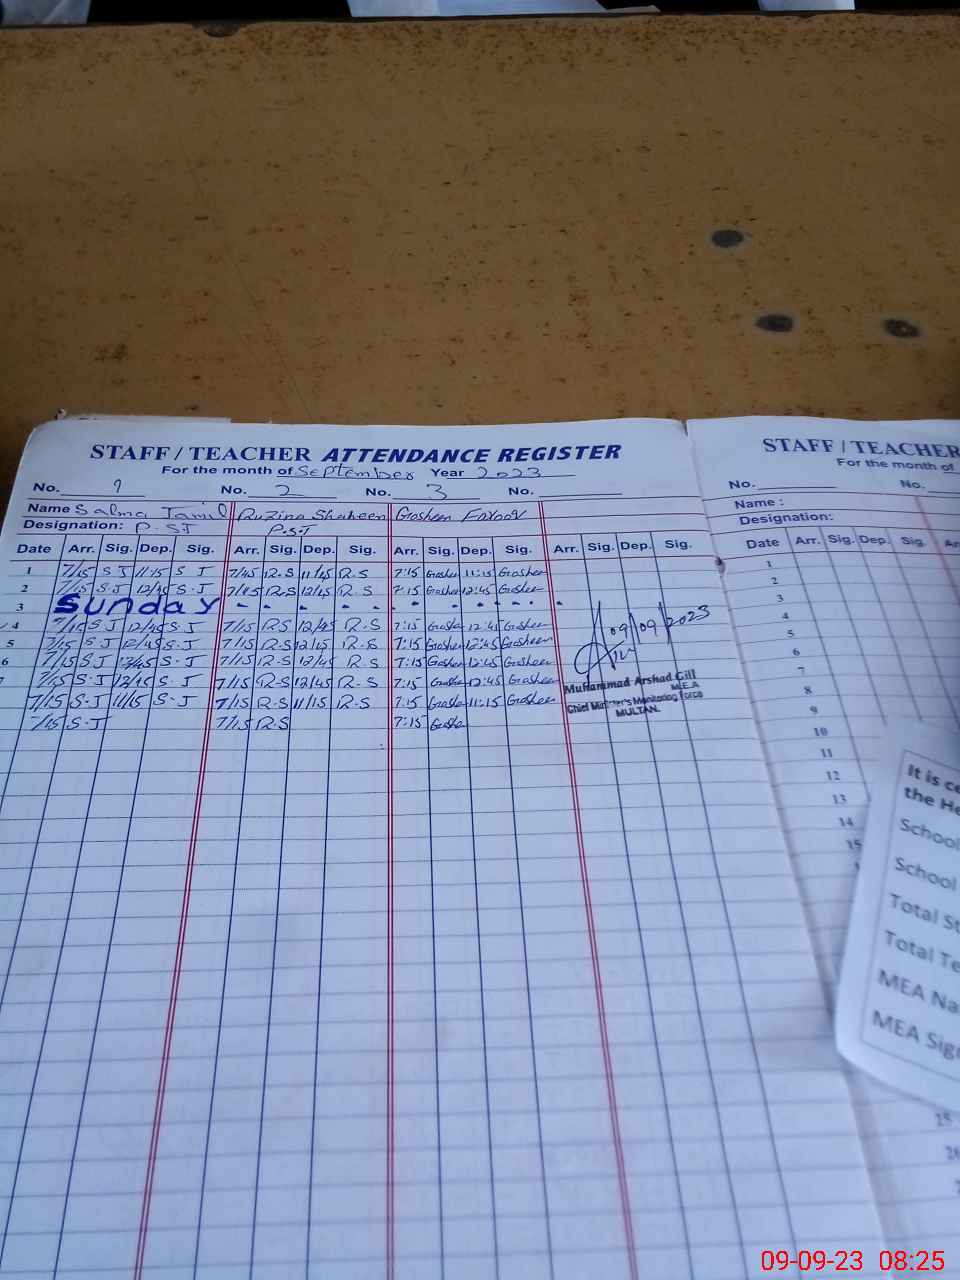 STAFF / TEACHER ATTENDANCE REGISTER
For the month of September Year 2023
No. 1 No. 2 No. 3 No.
Name Salma Jamil Ruzina Shaheen
Designation: P.S.T P.S.T
Date Arr. Sig. Dep. Sig. Arr. Sig. Dep. Sig. Arr. Sig. Dep. Sig. Arr. Sig. Dep. Sig.
1 7/15 S J 11/15 S J 7/45 R.S 11/45 R.S 7:15 11:15
2 7/15 S.J 12/45 S.J 7/45 R.S 12/45 R.S 7:15 12:45
3 Sunday
4 7/15 S J 12/45 S.J 7/15 R.S 12/45 R.S 7:15 12:45
5 7/15 S J 12/45 S.J 7/15 R.S 12/15 R.S 7:15 12:45
6 7/15 S J 12/45 S.J 7/15 R.S 12/45 R.S 7:15 12:45
7/15 S.J 12/45 S.J 7/15 R.S 12/45 R.S 7:15 12:45
7/15 S.J 11/15 S-J 7/15 R.S 11/15 R.S 7:15 11:15
7/15 S-J 7/15 R.S 7:15
09/09/2023
Muhammad Arshad Gill
M.E.A
Chief Minister's Monitoring Force
MULTAN.
STAFF / TEACHER
For the month of
No. No.
Name :
Designation:
Date Arr. Sig. Dep. Sig.
1
2
3
4
5
6
7
8
9
10
11
12
13
14
15
25
It is ce
the He
School
School
Total St
Total Te
MEA Na
MEA Sig
09-09-23 08:25